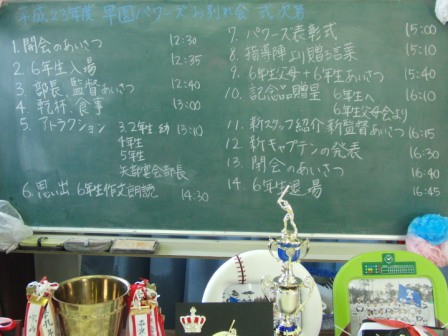 平成23年度 早園パワーズ お別れ会 式次第
1. 開会のあいさつ 12:30
2. 6年生入場 12:35
3. 部長、監督あいさつ 12:40
4. 乾杯/食事 13:00
5. アトラクション 3.2年生 13:10
4年生
5年生
矢部宴会部長
6. 思い出 6年生作文朗読 14:30
7. パワーズ表彰式 15:00
8. 指導陣より贈る言葉 15:10
9. 6年生父母+6年生あいさつ 15:40
10. 記念品贈呈 6年生へ 16:10
6年生父母会より
11. 新スタッフ紹介 新監督あいさつ 16:15
12. 新キャプテンの発表 16:30
13. 閉会のあいさつ 16:40
14. 6年生退場 16:45